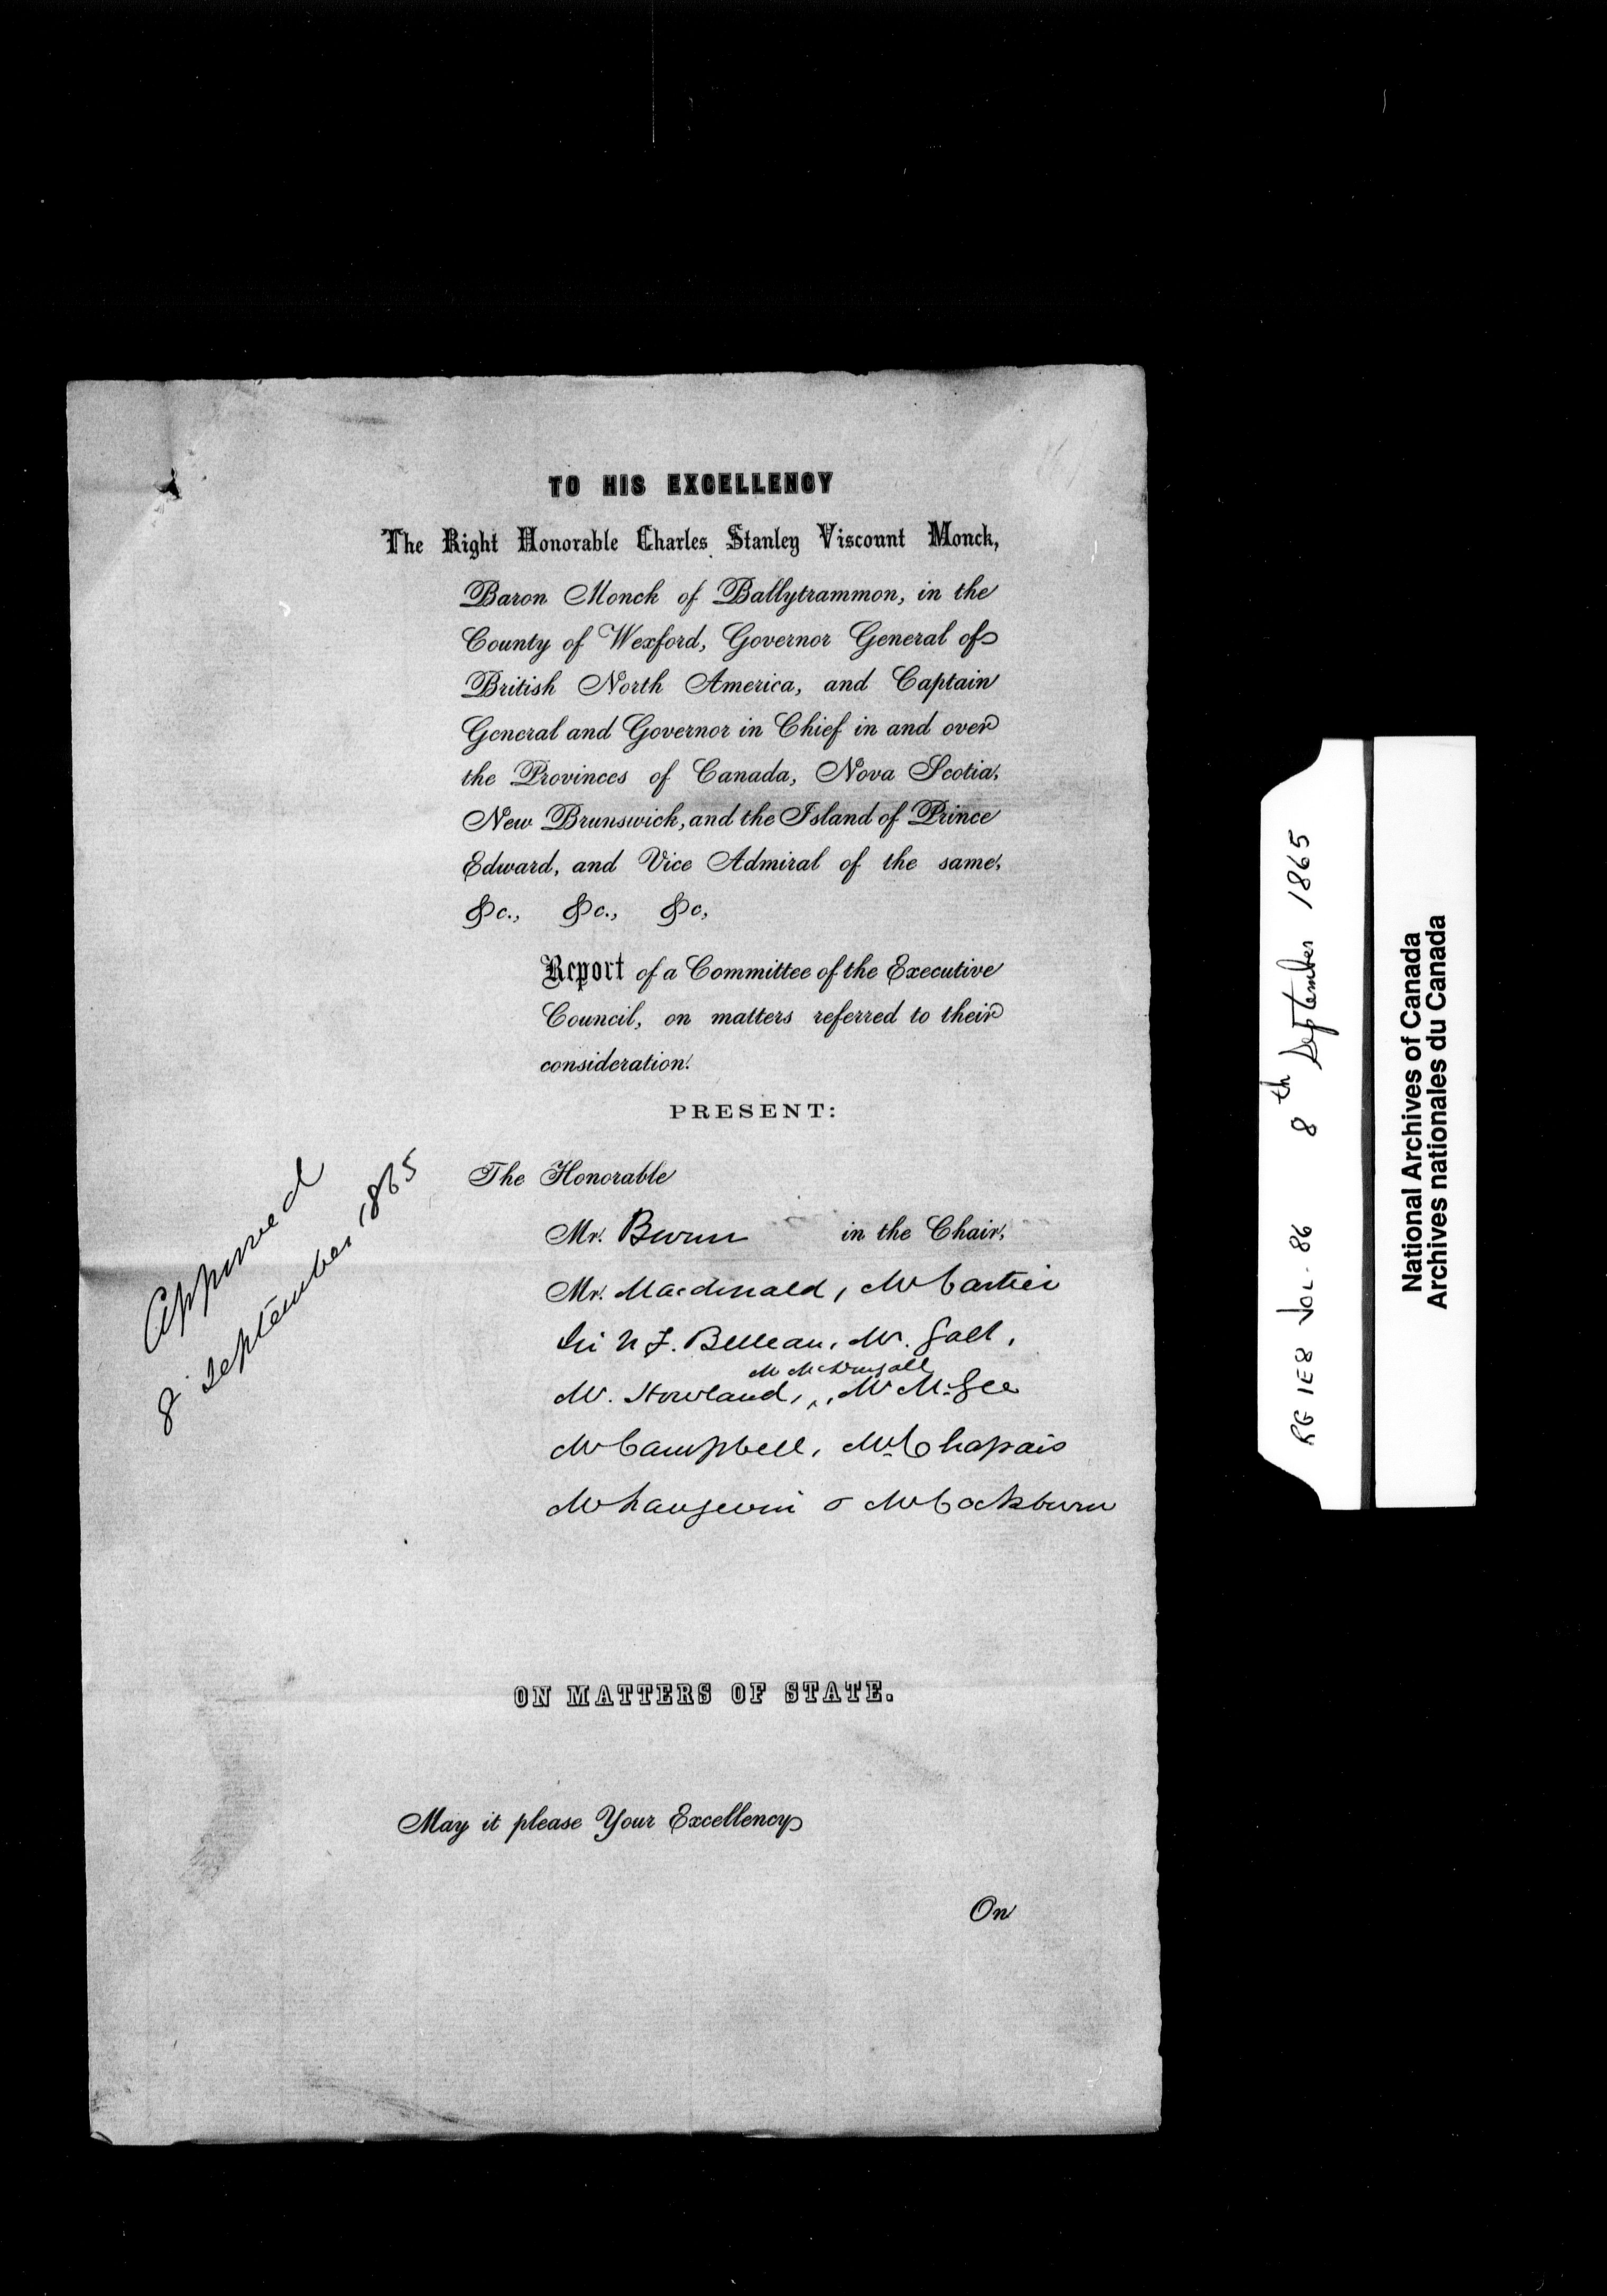 TO HIS EXCELLENCY
The Right Honorable Charles Stanley Viscount Monck,
Baron Monck of Ballytrammon, in the
County of Wexford, Governor General of
British North America, and Captain
General and Governor in Chief in and over
the Provinces of Canada, Nova Scotia,
New Brunswick, and the Island of Prince
Edward, and Vice Admiral of the same,
&c., &c., &c,
Report of a Committee of the Executive
Council, on matters referred to their
consideration.
PRESENT:
The Honorable
Mr. Brown in the Chair,
Mr. Macdonald, Mr Cartier
Sir N F. Belleau, Mr. Galt,
Mr McDougall
Mr. Howland, Mr McGee
Mr Campbell, Mr Chapais
Mr Langevin & Mr Cockburn
Approved
8 September 1865
ON MATTERS OF STATE.
May it please Your Excellency
On
RG 1E8 VOL. 86 8th September 1865
National Archives of Canada
Archives nationales du Canada